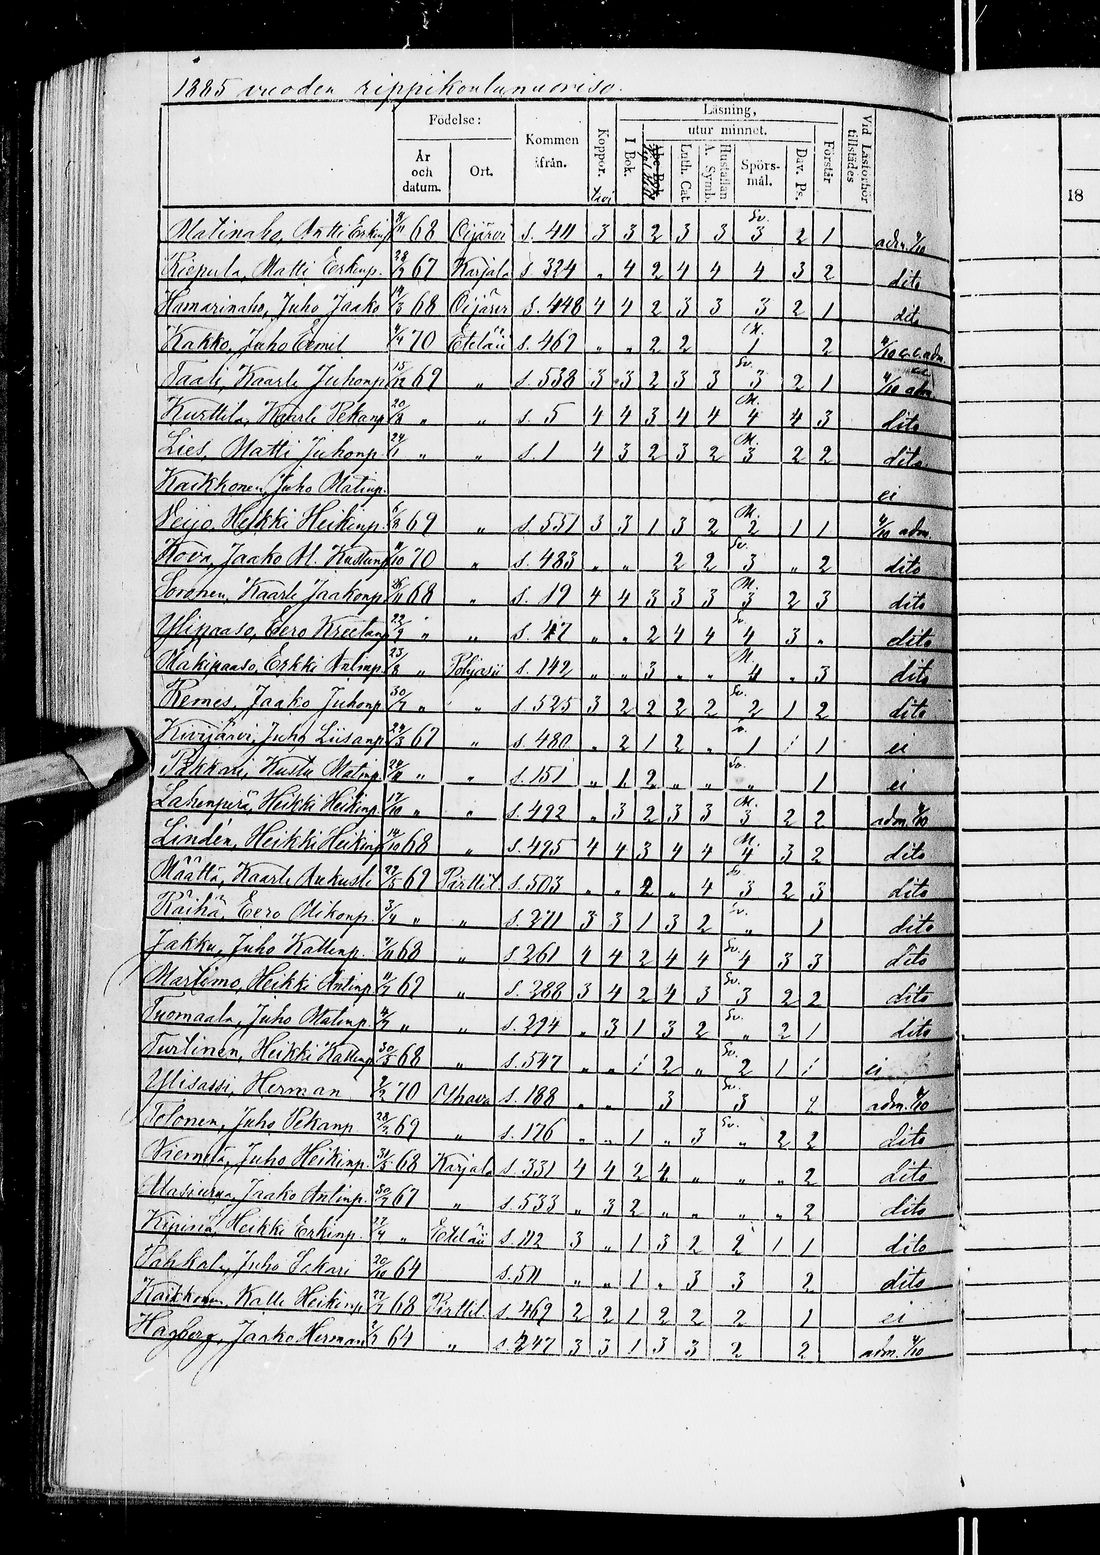 1885 vuoden rippikoulunuoriso.
Födelse: Kommen ifrån. Koppor. Läsning, Vid Läsförhör tillstädes
utur minnet.
År och datum. Ort. I Bok. Luth. Cat. Hustaflan A. Symb. Spörsmål. Dav. Ps. Förstår
18
Matinaho, Antti Erkinp 68 Oijärvi s. 411 3 3 2 3 3 Sv. 3 2 1 adm. 4/10
Kiepula, Matti Erkinp. 28/2 67 Karjala s. 324 „ 4 2 4 4 4 3 2 dito
Hamarinaho, Juho Jaako 14/3 68 Oijärvi s. 448 4 4 2 3 3 3 2 1 dito
Kakko, Juho Eemil 70 Etelää s. 467 „ „ 2 2 M. 1 2 4/10 c.c. adm.
Taali, Kaarle Juhonp 15/12 69 „ s. 538 3 3 2 3 3 Sv. 3 2 1 4/10 adm.
Kurttila, Kaarle Pekanp 20/8 „ „ s. 5 4 4 3 4 4 M. 4 4 3 dito
Lies, Matti Juhonp 24/1 „ „ s. 1 4 3 2 3 2 M. 3 2 2 dito
Kaikkonen, Juho Matinp. ei
Veijo, Heikki Heikinp. 6/8 69 „ s. 531 3 3 1 3 2 M. 2 1 1 4/10 adm.
Kova, Jaako M. Kustanp 70 „ s. 483 „ „ 2 2 Sv. 3 „ 2 dito
Soronen, Kaarle Jaakonp 68 „ s. 19 4 4 3 3 3 M. 3 2 3 dito
Ylipaaso, Eero Kreetanp 22/2 „ „ s. 47 „ „ 2 4 4 Sv. 4 3 „ dito
Makipaaso, Erkki Antinp. 23/8 „ Pohjasii s. 142 „ „ 3 „ „ M. 4 „ 3 dito
Remes, Jaako Juhonp 30/7 „ „ s. 525 3 2 2 2 2 Sv. 2 1 2 dito
Kivijärvi, Juho Liisanp 24/3 67 „ s. 480 „ 2 1 2 „ Sv. 1 1 1 ei
Pekkari, Kusta Matinp „ „ s. 151 „ 1 2 „ „ Sv. „ 1 ei
Lahenperä, Heikki Heikinp. 17/10 „ „ s. 492 „ 3 2 3 3 M. 3 2 2 adm. 4/10
Lindén, Heikki Heikinp 14/10 68 „ s. 495 4 4 3 4 4 M. 4 3 2 dito
Määttä, Kaarle Aukusti 22/5 69 Pirttit s. 503 „ „ 2 „ 4 Sv. 3 2 3 dito
Räihä, Eero Olikonp. 3/4 „ „ s. 271 3 3 1 3 2 Sv. „ 1 dito
Jakku, Juho Kallenp. 68 „ s. 261 4 4 2 4 4 Sv. 4 3 3 dito
Martimo, Heikki Antinp 69 „ s. 288 3 4 2 4 3 Sv. 3 2 2 dito
Tuomaala, Juho Matinp. „ „ s. 294 „ 3 1 3 2 Sv. „ 2 1 dito
Turtinen, Heikki Kallenp 30/3 68 „ s. 547 „ „ 1 2 „ Sv. 2 1 1 ei
Ylisassi, Herman 70 Uthava s. 188 „ „ 3 Sv. 3 2 adm. 4/10
Tolonen, Juho Pekanp 28/2 69 „ s. 176 „ „ 1 „ 3 Sv. „ 2 2 dito
Niemelä, Juho Heikinp. 31/5 68 Karjala s. 331 4 4 2 4 „ „ „ 2 dito
Masiurna, Jaako Antinp. 30/7 67 „ s. 533 „ 3 2 „ „ „ „ 2 dito
Kipinä, Heikki Erkinp. 27/4 „ Etelää s. 112 3 „ 1 3 2 2 1 1 dito
Pahkala, Juho Sekari 20/10 64 s. 511 „ „ 1 „ 3 3 2 dito
Kaikkonen, Kalle Heikinp 27/7 68 Pirttit s. 469 2 2 1 2 2 2 1 ei
Hagberg, Jaako Herman 64 „ s. 247 3 3 1 3 3 2 2 adm. 4/10